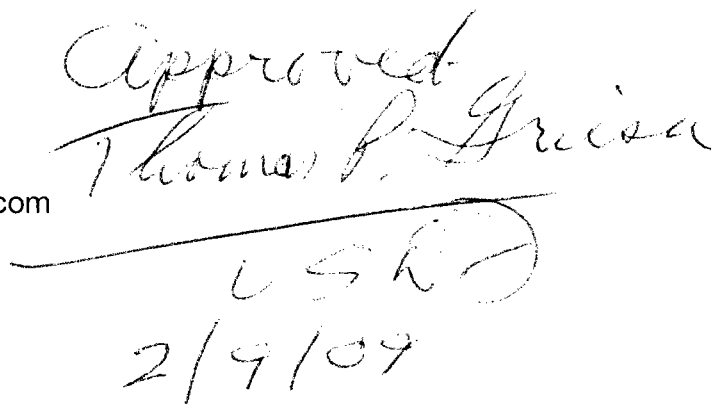 Approved
Thomas P. Griesa
com
USDJ
2/9/09